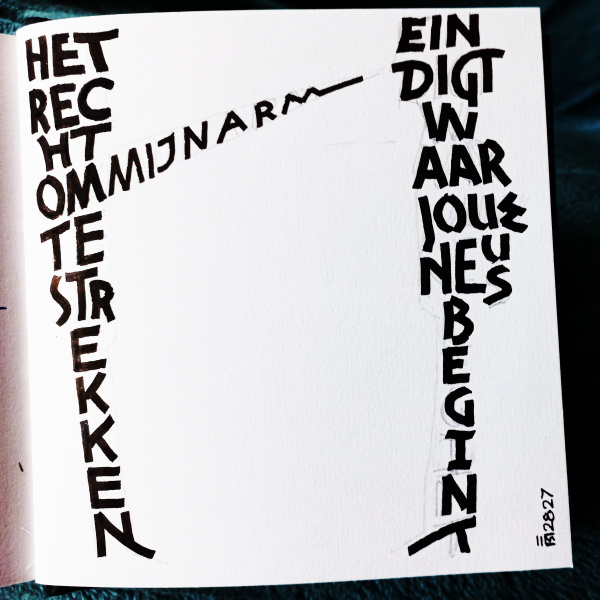 HET
REC
HT
OM MIJN ARM
TE
STR
E
K
K
E
N
EIN
DIGT
W
AAR
JOUW
NEUS
B
E
G
I
N
T
2827